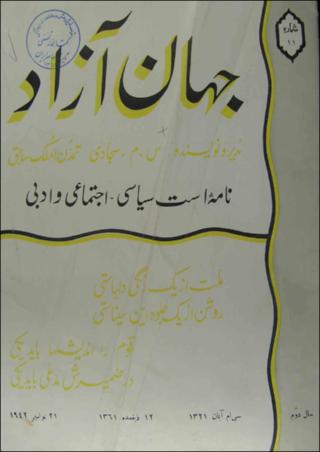 شماره
۱۱
جهان آزاد
مدیر و نویسنده س. م. سجادی تمدن الملک سابق
نامه است سیاسی - اجتماعی و ادبی
ملت از یک رنگی دلهاستی
روشن از یک جلوه این سیناستی
قوم را اندیشه‌ها باید یکی
در ضمیرش مدعی باید یکی
سال دوم
سی‌ام آبان ۱۳۲۱
۱۲ ذیقعده ۱۳۶۱
۲۱ نوامبر ۱۹۴۲